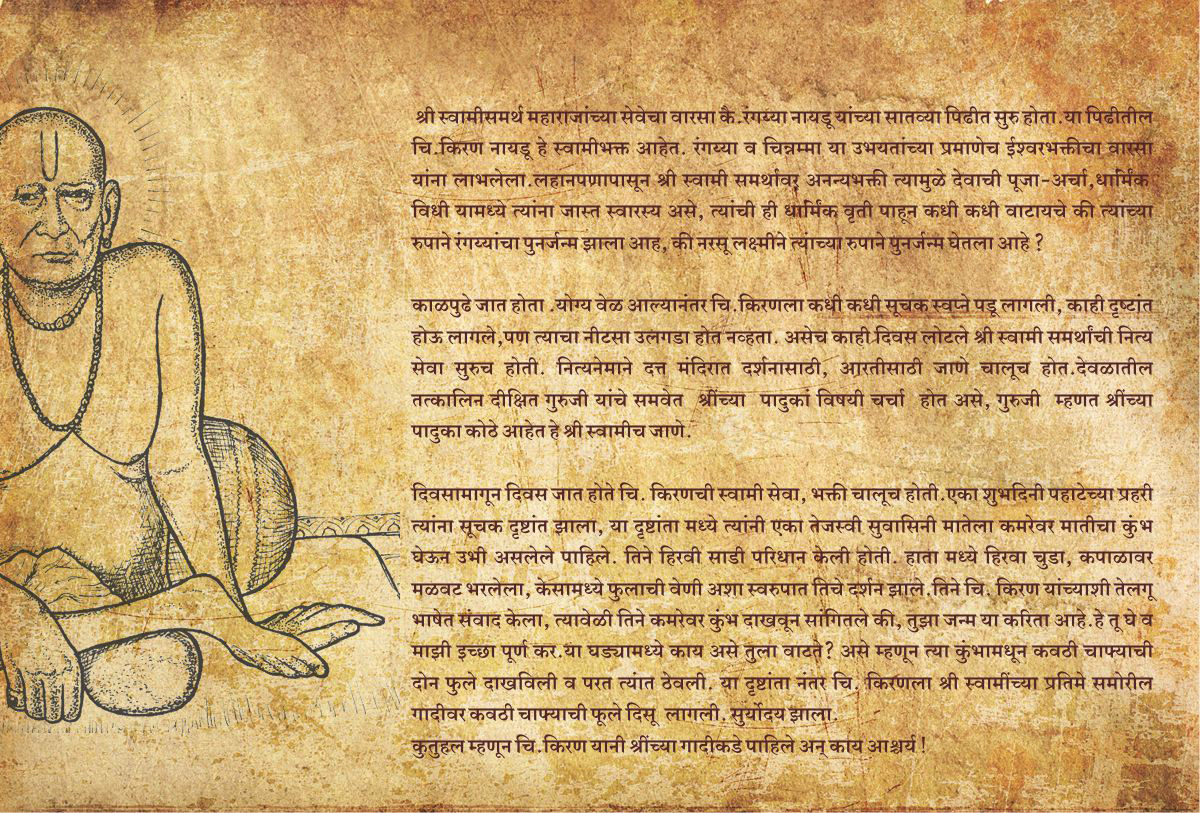 श्री स्वामीसमर्थ महाराजांच्या सेवेचा वारसा कै.रंगय्या नायडू यांच्या सातव्या पिढीत सुरु होता.या पिढीतील
चि.किरण नायडू हे स्वामीभक्त आहेत. रंगय्या व चिन्नम्मा या उभयतांच्या प्रमाणेच ईश्वरभक्तीचा वारसा
यांना लाभलेला.लहानपणापासून श्री स्वामी समर्थांवर अनन्यभक्ती त्यामुळे देवाची पूजा-अर्चा,धार्मिक
विधी यामध्ये त्यांना जास्त स्वारस्य असे, त्यांची ही धार्मिक वृती पाहून कधी कधी वाटायचे की त्यांच्या
रुपाने रंगय्यांचा पुनर्जन्म झाला आह, की नरसू लक्ष्मीने त्यांच्या रुपाने पुनर्जन्म घेतला आहे ?
काळपुढे जात होता .योग्य वेळ आल्यानंतर चि.किरणला कधी कधी सूचक स्वप्ने पडू लागली, काही दृष्टांत
होऊ लागले,पण त्याचा नीटसा उलगडा होत नव्हता. असेच काही दिवस लोटले श्री स्वामी समर्थांची नित्य
सेवा सुरुच होती. नित्यनेमाने दत्त मंदिरात दर्शनासाठी, आरतीसाठी जाणे चालूच होत.देवळातील
तत्कालिन दीक्षित गुरुजी यांचे समवेत श्रींच्या पादुकां विषयी चर्चा होत असे, गुरुजी म्हणत श्रींच्या
पादुका कोठे आहेत हे श्री स्वामीच जाणे.
दिवसामागून दिवस जात होते चि. किरणची स्वामी सेवा, भक्ती चालूच होती.एका शुभदिनी पहाटेच्या प्रहरी
त्यांना सूचक दृष्टांत झाला, या दृष्टांता मध्ये त्यांनी एका तेजस्वी सुवासिनी मातेला कमरेवर मातीचा कुंभ
घेऊन उभी असलेले पाहिले. तिने हिरवी साडी परिधान केली होती. हाता मध्ये हिरवा चुडा, कपाळावर
मळवट भरलेला, केसामध्ये फुलाची वेणी अशा स्वरुपात तिचे दर्शन झाले.तिने चि. किरण यांच्याशी तेलगू
भाषेत संवाद केला, त्यावेळी तिने कमरेवर कुंभ दाखवून सांगितले की, तुझा जन्म या करिता आहे.हे तू घे व
माझी इच्छा पूर्ण कर.या घड्यामध्ये काय असे तुला वाटते? असे म्हणून त्या कुंभामधून कवठी चाफ्याची
दोन फुले दाखविली व परत त्यांत ठेवली. या दृष्टांता नंतर चि. किरणला श्री स्वामींच्या प्रतिमे समोरील
गादीवर कवठी चाफ्याची फूले दिसू लागली. सुर्योदय झाला.
कुतुहल म्हणून चि.किरण यानी श्रींच्या गादीकडे पाहिले अन् काय आश्चर्य !